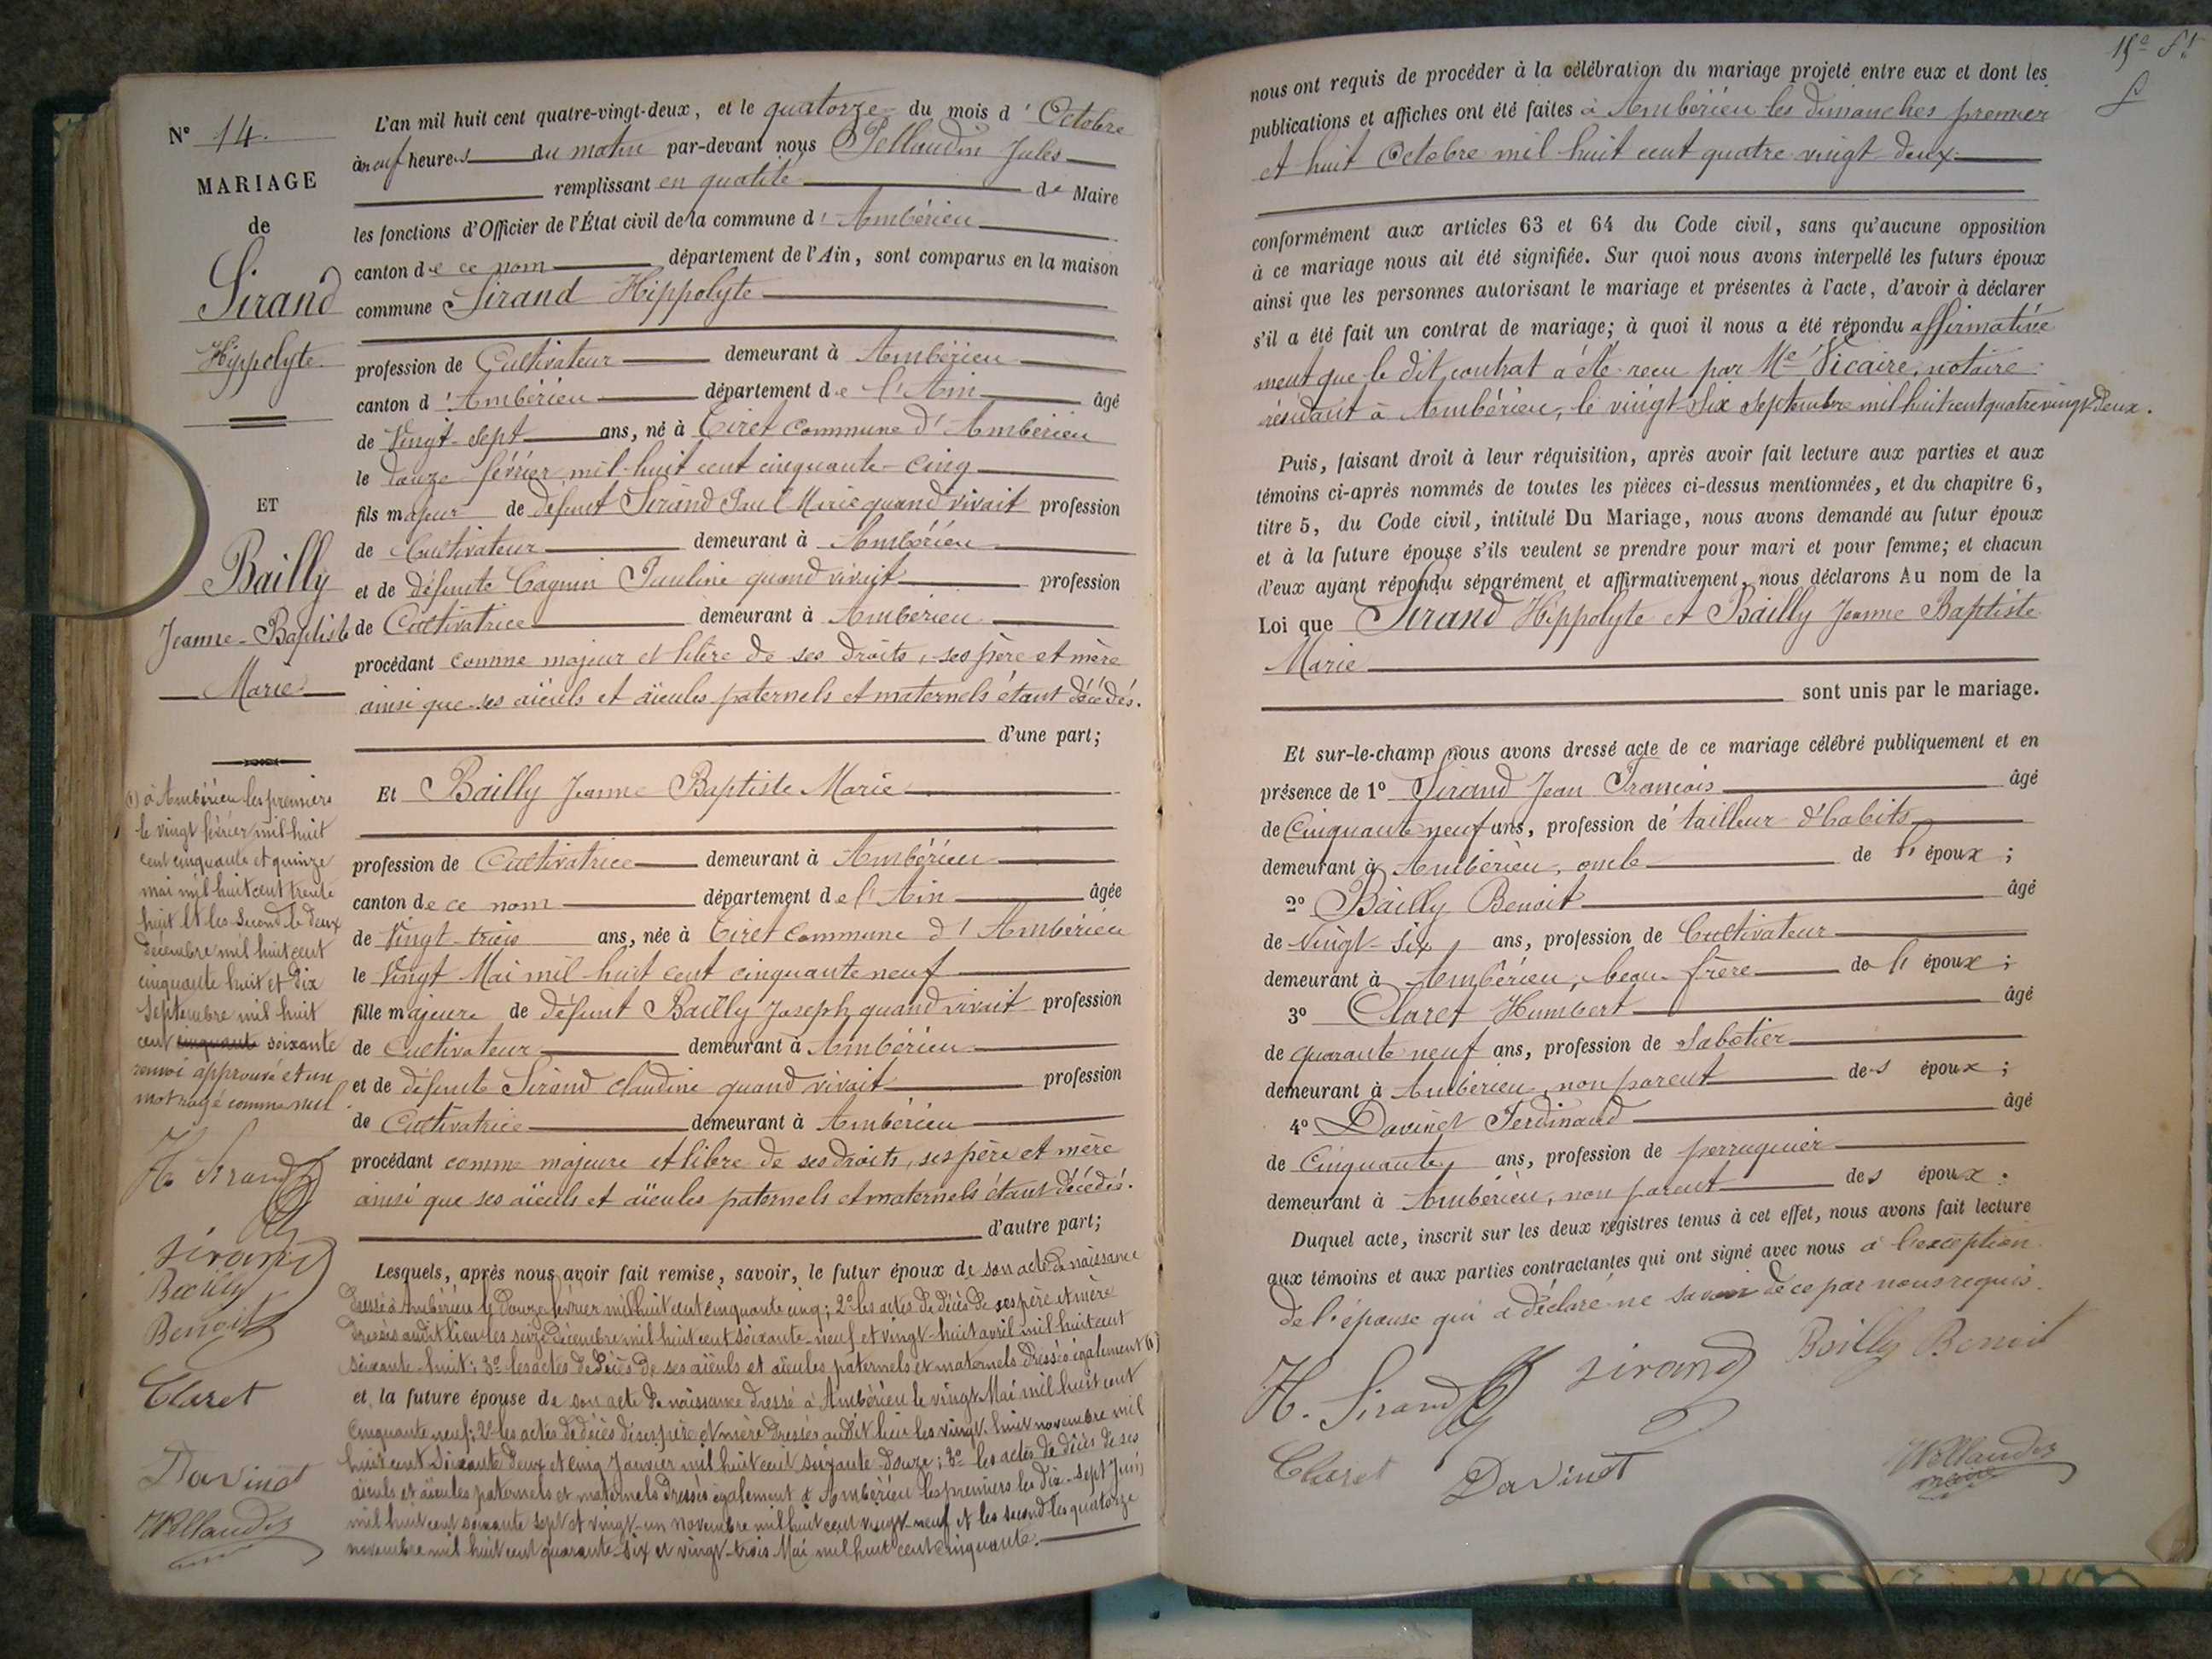 N° 14.
MARIAGE
de
Sirand
Hippolyte
ET
Bailly
Jeanne-Baptiste
Marie
(1) à Ambérieu les premiers
le vingt février mil huit
cent cinquante et quinze
mai mil huit cent trente
huit et les second le deux
décembre mil huit cent
cinquante huit et dix
septembre mil huit
cent cinquante soixante
renvoi approuvé et un
mot rayé comme nul
H. Sirand
Sirand
Bailly
Benoit
Claret
Davinet
L'an mil huit cent quatre-vingt-deux, et le quatorze du mois d'Octobre
à neuf heures du matin par-devant nous Pellaudin Jules
remplissant en qualité de Maire
les fonctions d'Officier de l'État civil de la commune d'Ambérieu
canton de ce nom département de l'Ain, sont comparus en la maison
commune Sirand Hippolyte
profession de Cultivateur demeurant à Ambérieu
canton d'Ambérieu département de l'Ain âgé
de Vingt-sept ans, né à Tiret commune d'Ambérieu
le douze février mil huit cent cinquante-cinq
fils majeur de défunt Sirand Paul Marie quand vivait profession
de Cultivateur demeurant à Ambérieu
et de défunte Cagnin Pauline quand vivait profession
de Cultivatrice demeurant à Ambérieu
procédant comme majeur et libre de ses droits, ses père et mère
ainsi que ses aïeuls et aïeules paternels et maternels étant décédés.
d'une part;
Et Bailly Jeanne Baptiste Marie
profession de Cultivatrice demeurant à Ambérieu
canton de ce nom département de l'Ain âgée
de Vingt-trois ans, née à Tiret commune d'Ambérieu
le Vingt Mai mil huit cent cinquante neuf
fille majeure de défunt Bailly Joseph quand vivait profession
de Cultivateur demeurant à Ambérieu
et de défunte Sirand Claudine quand vivait profession
de Cultivatrice demeurant à Ambérieu
procédant comme majeure et libre de ses droits, ses père et mère
ainsi que ses aïeuls et aïeules paternels et maternels étant décédés.
d'autre part;
Lesquels, après nous avoir fait remise, savoir, le futur époux de son acte de naissance
dressé à Ambérieu le douze février mil huit cent cinquante cinq; 2° les actes de décès de ses père et mère
dressés audit lieu les seize décembre mil huit cent soixante-neuf et vingt-huit avril mil huit cent
soixante-huit; 3° les actes de décès de ses aïeuls et aïeules paternels et maternels dressés également (1)
et, la future épouse de son acte de naissance dressé à Ambérieu le vingt Mai mil huit cent
cinquante neuf; 2° les actes de décès de ses père et mère dressés audit lieu les vingt-huit novembre mil
huit cent soixante deux et cinq Janvier mil huit cent soixante douze; 3° les actes de décès de ses
aïeuls et aïeules paternels et maternels dressés également à Ambérieu les premiers les dix-sept Juin
mil huit cent soixante sept et vingt-un novembre mil huit cent vingt-neuf et les second les quatorze
novembre mil huit cent quarante-six et vingt-trois Mai mil huit cent cinquante.
15e ft
nous ont requis de procéder à la célébration du mariage projeté entre eux et dont les
publications et affiches ont été faites à Ambérieu les dimanches premier
et huit Octobre mil huit cent quatre vingt deux
conformément aux articles 63 et 64 du Code civil, sans qu'aucune opposition
à ce mariage nous ait été signifiée. Sur quoi nous avons interpellé les futurs époux
ainsi que les personnes autorisant le mariage et présentes à l'acte, d'avoir à déclarer
s'il a été fait un contrat de mariage; à quoi il nous a été répondu affirmative
ment que le dit contrat a été reçu par Me Vicaire, notaire
résidant à Ambérieu, le vingt six Septembre mil huit cent quatre vingt deux.
Puis, faisant droit à leur réquisition, après avoir fait lecture aux parties et aux
témoins ci-après nommés de toutes les pièces ci-dessus mentionnées, et du chapitre 6,
titre 5, du Code civil, intitulé Du Mariage, nous avons demandé au futur époux
et à la future épouse s'ils veulent se prendre pour mari et pour femme; et chacun
d'eux ayant répondu séparément et affirmativement, nous déclarons Au nom de la
Loi que Sirand Hippolyte et Bailly Jeanne Baptiste
Marie
sont unis par le mariage.
Et sur-le-champ nous avons dressé acte de ce mariage célébré publiquement et en
présence de 1° Sirand Jean François âgé
de Cinquante neuf ans, profession de tailleur d'habits
demeurant à Ambérieu, oncle de l'époux;
2° Bailly Benoit âgé
de Vingt-six ans, profession de Cultivateur
demeurant à Ambérieu, beau-frère de l'époux;
3° Claret Humbert âgé
de quarante neuf ans, profession de Sabotier
demeurant à Ambérieu, non parent des époux;
4° Davinet Ferdinand âgé
de Cinquante ans, profession de perruquier
demeurant à Ambérieu, non parent des époux.
Duquel acte, inscrit sur les deux registres tenus à cet effet, nous avons fait lecture
aux témoins et aux parties contractantes qui ont signé avec nous à l'exception
de l'épouse qui a déclaré ne savoir de ce par nous requis.
H. Sirand Sirand Bailly Benoit
Claret Davinet
maire